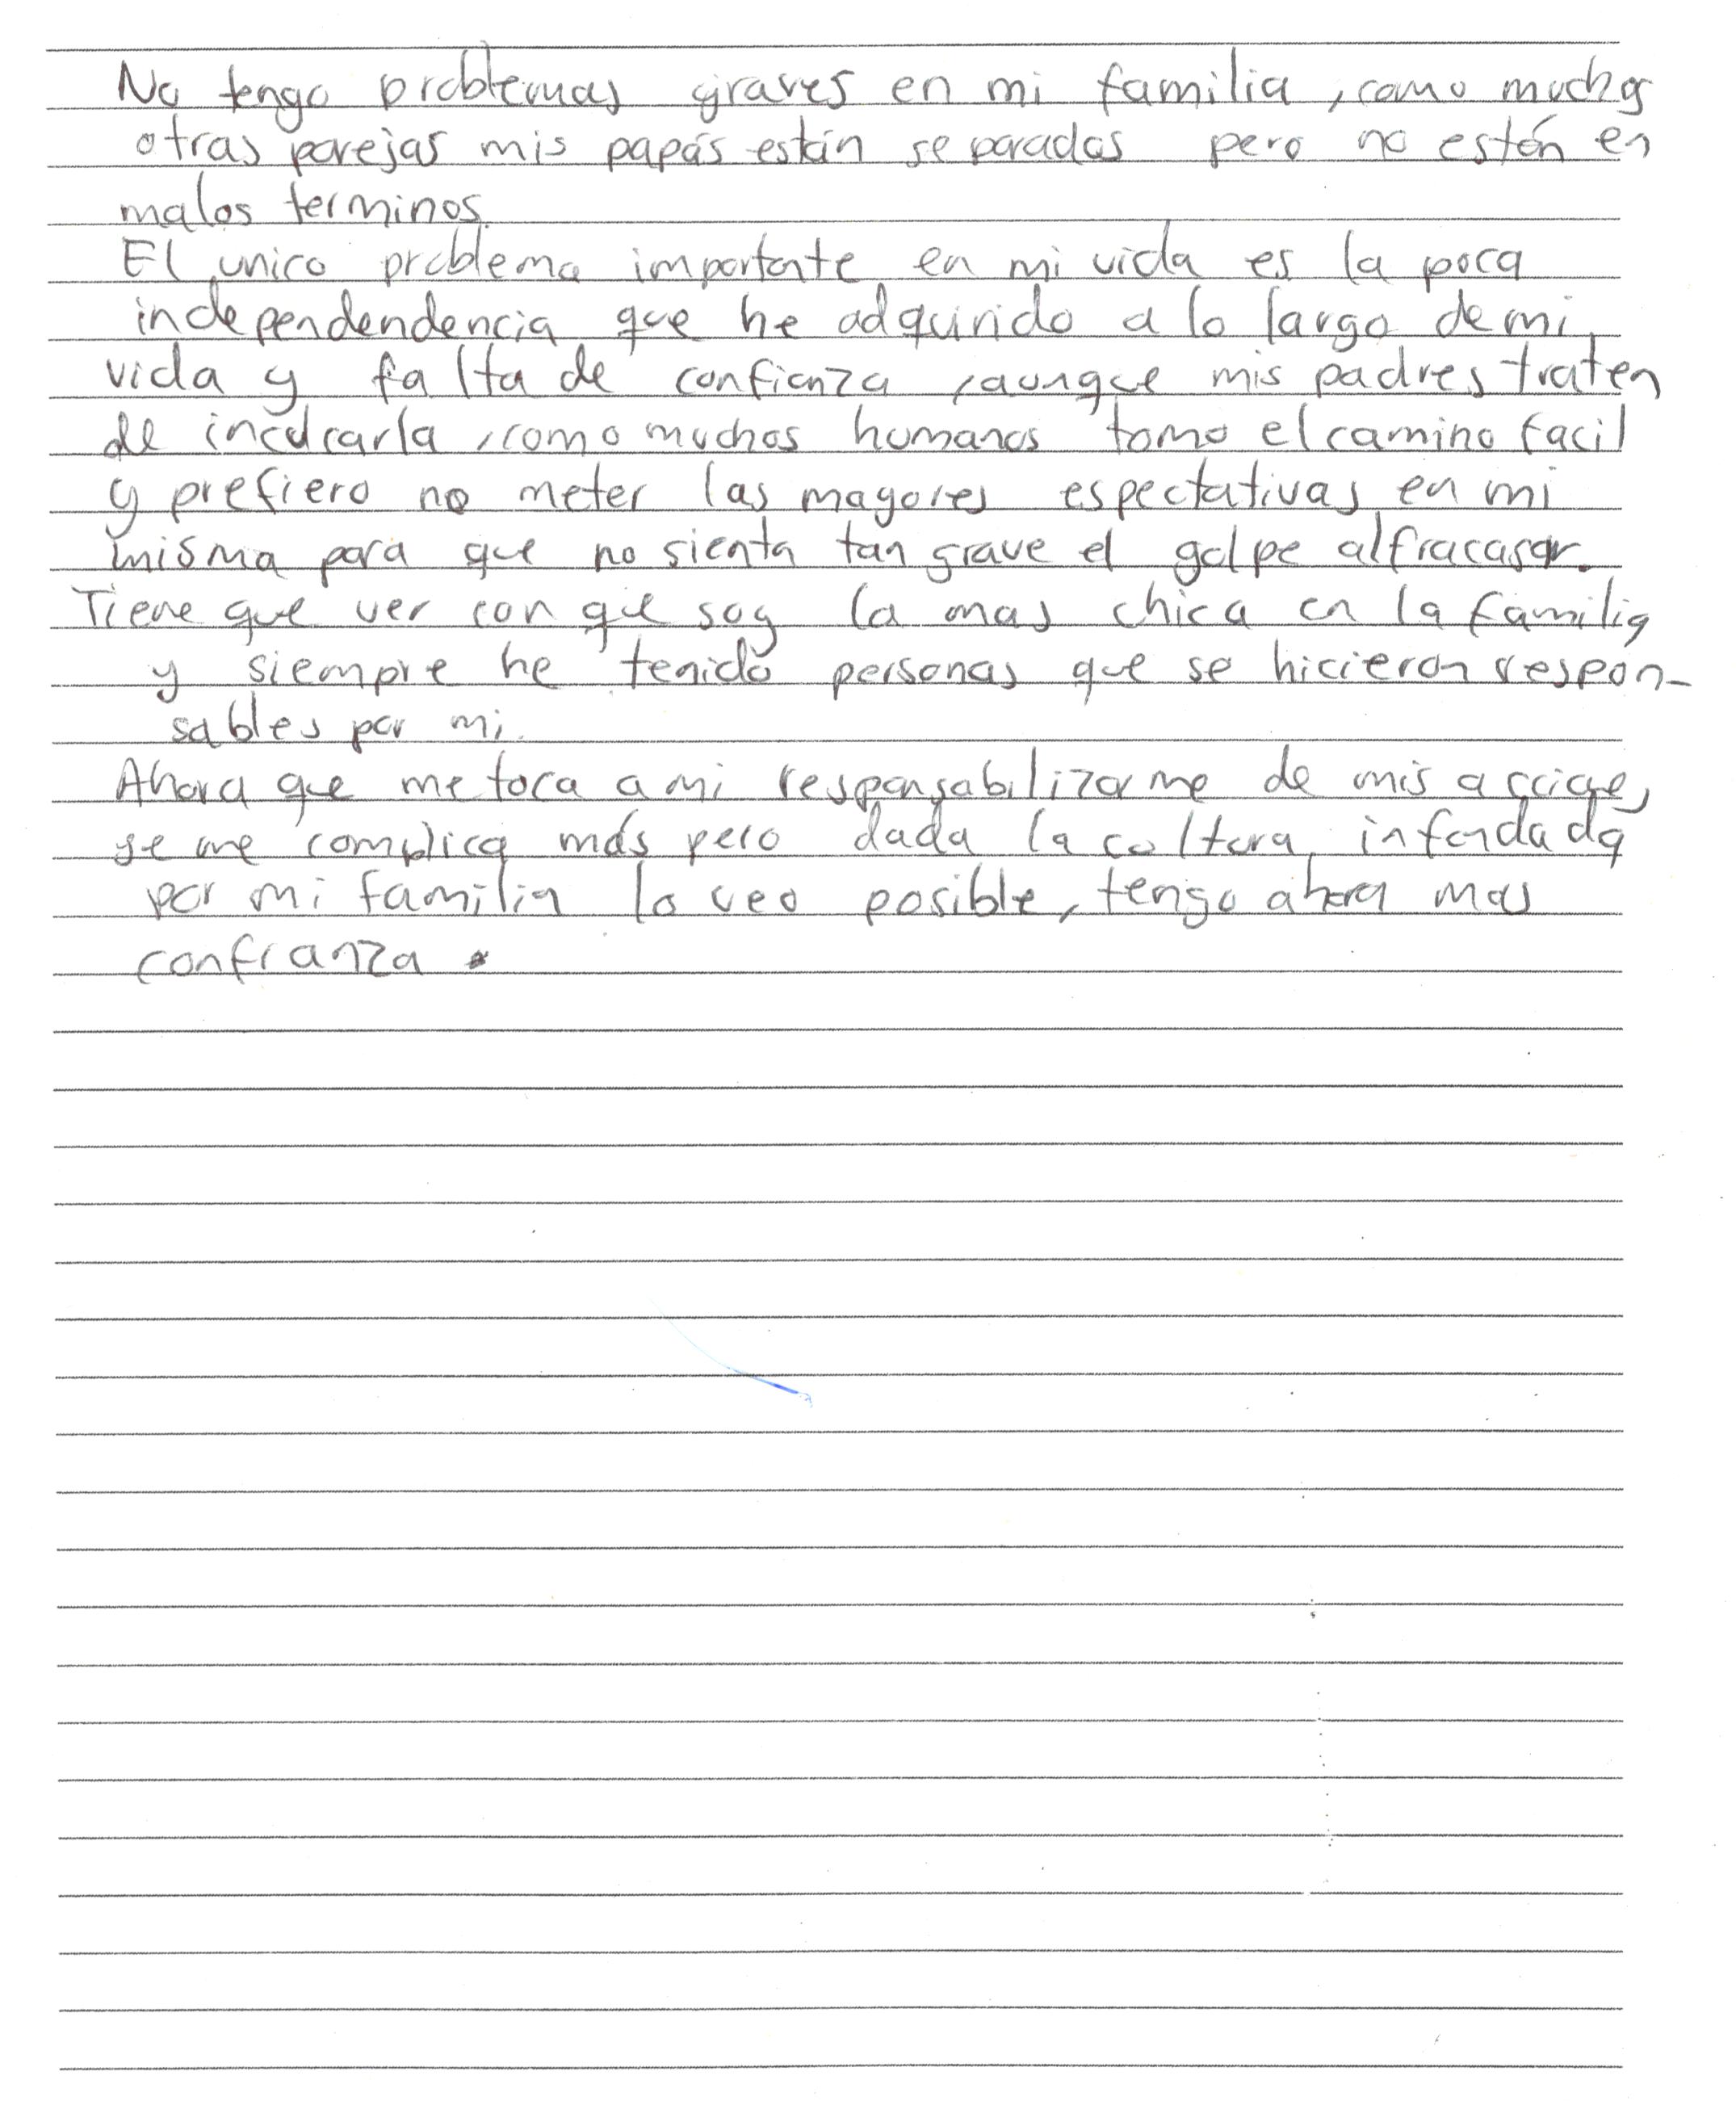 No tengo problemas graves en mi familia, como muchas
otras parejas mis papás están separados pero no están en
malos terminos.
El unico problema importante en mi vida es la poca
independendencia que he adquirido a lo largo de mi
vida y falta de confianza, aunque mis padres traten
de inculcarla, como muchos humanos tomo el camino facil
y prefiero no meter las mayores espectativas en mi
misma para que no sienta tan grave el golpe al fracasar.
Tiene que ver con que soy la mas chica en la familia
y siempre he tenido personas que se hicieron respon-
sables por mi.
Ahora que me toca a mi responsabilizarme de mis
se me complica más pero dada la cultura infundada
por mi familia lo veo posible, tengo ahora mas
confianza.